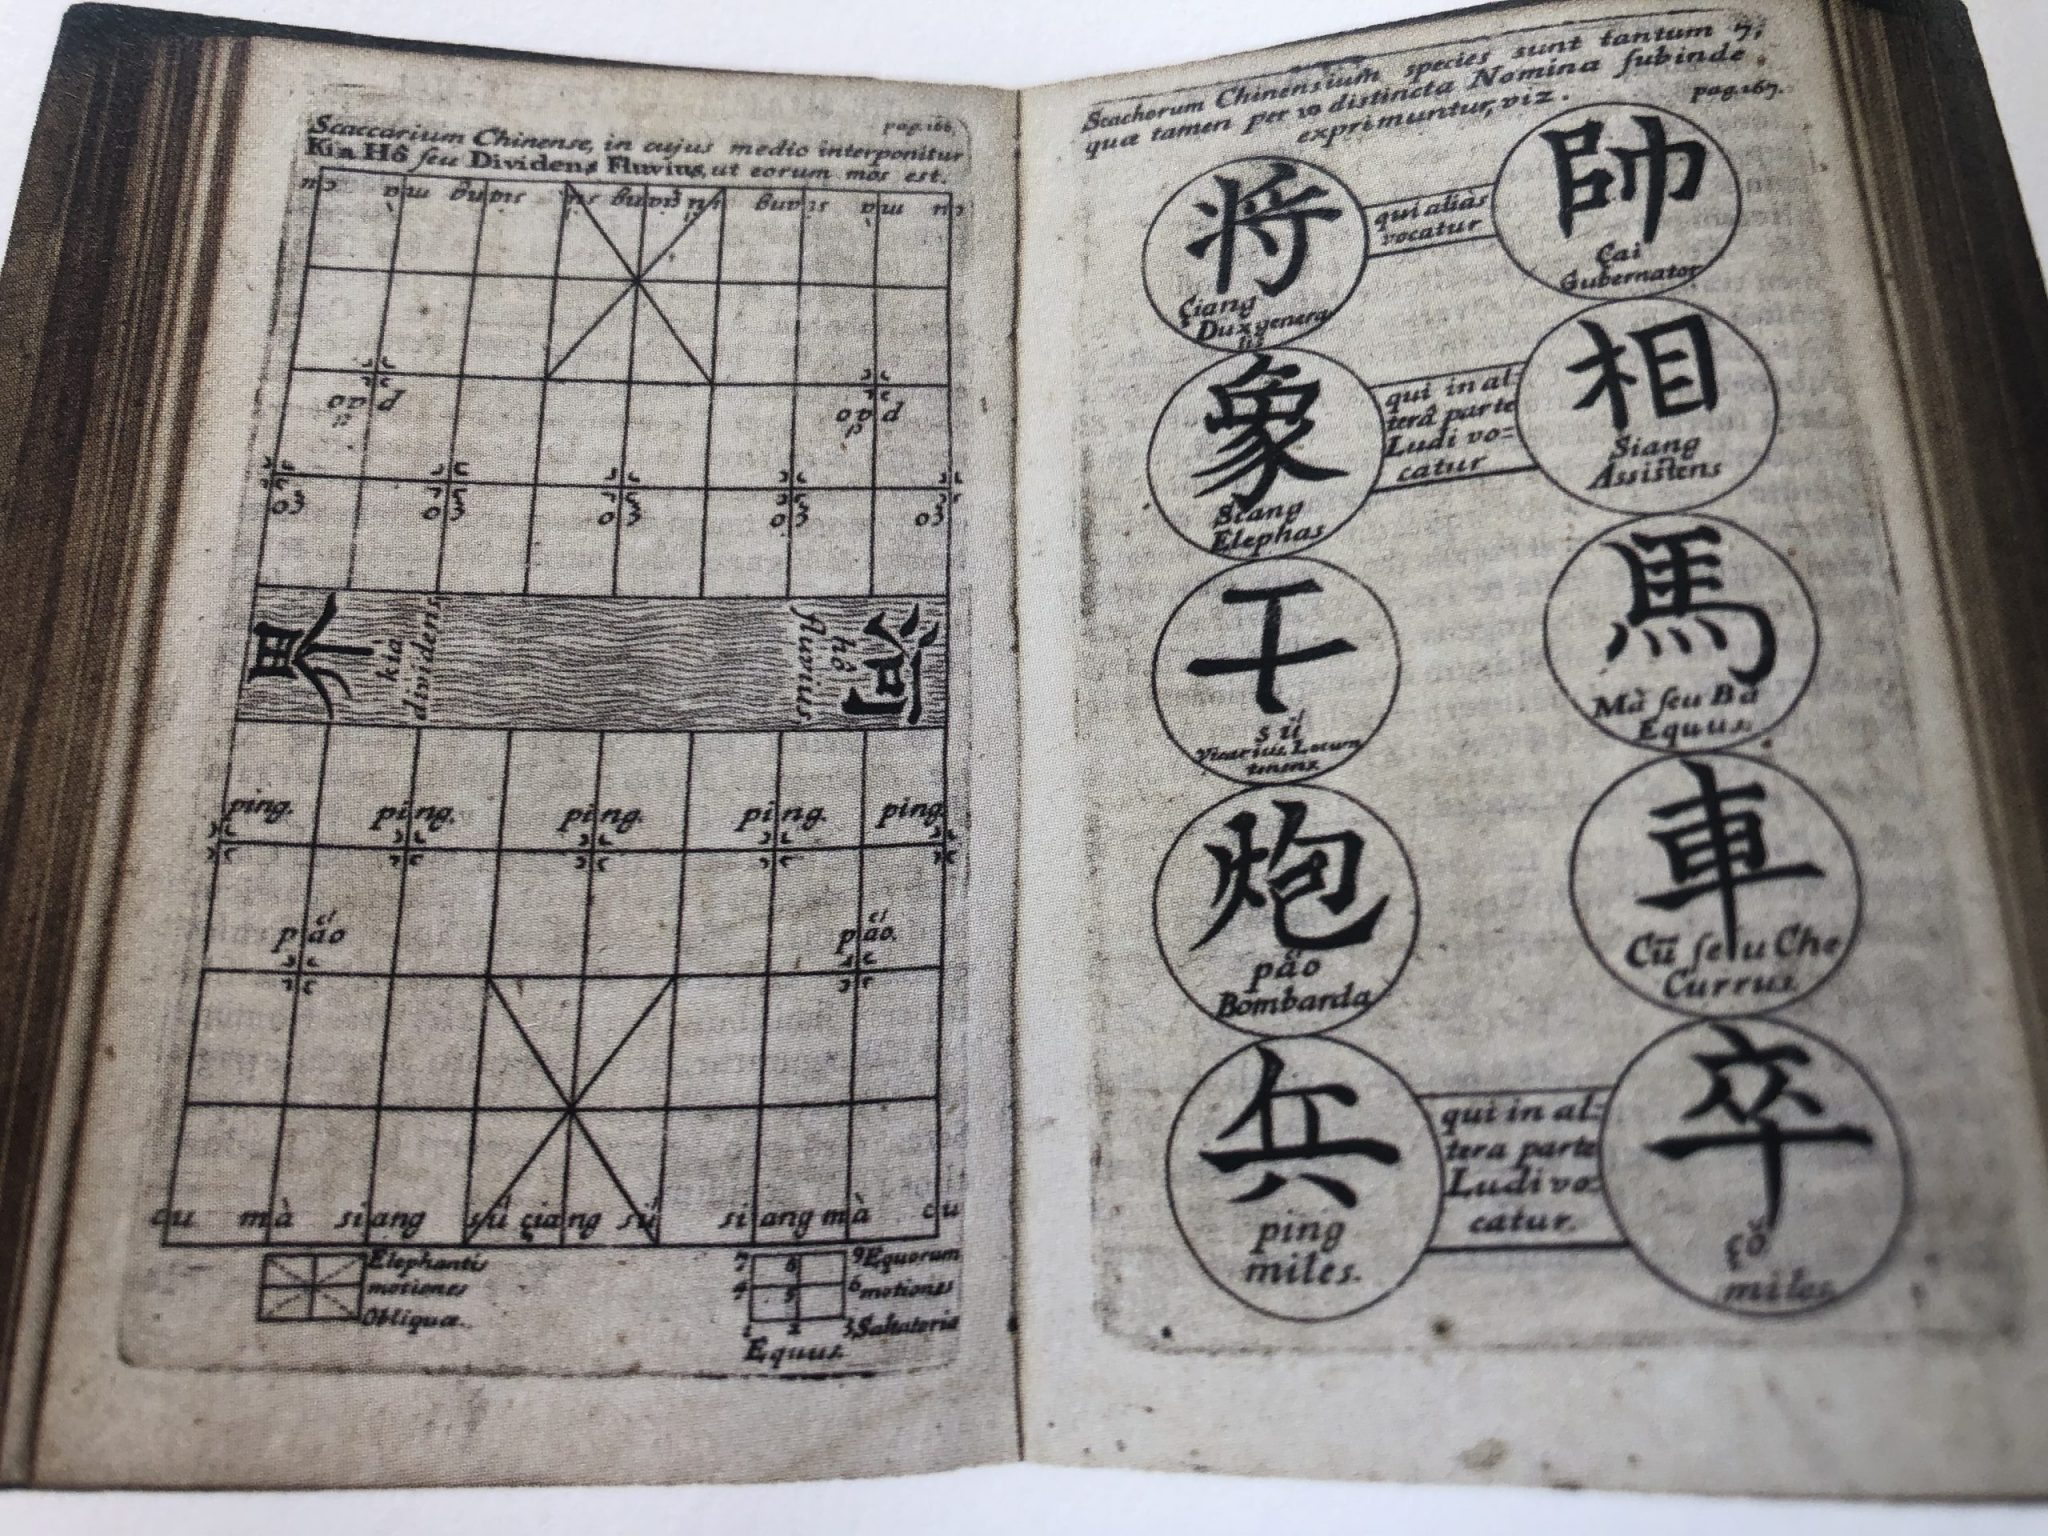 pag. 166.
Scaccarium Chinense, in cujus medio interponitur
Kia Hô ſeu Dividens Fluvius, ut eorum mos est.
cu mà siang sú çiang sú siang mà cu
páo páo
çó çó çó çó çó
界 kià dividens
河 hô fluvius
ping. ping. ping. ping. ping.
páo páo.
cu mà siang sú çiang sú siang mà cu
Elephantis
motiones
Obliquæ.
7 8 9 Equorum
4 5 6 motiones
1 2 3 Saltatoria
Equus.
Scachorum Chinensium species sunt tantum 7,
quæ tamen per 10 distincta Nomina ſubinde
exprimuntur, viz.
pag. 167.
将
Çiang
Dux genera
lis
qui aliàs
vocatur
帥
Çai
Gubernator
象
Siang
Elephas
qui in al-
terâ parte
Ludi vo=
catur
相
Siang
Assistens
士
sú
Vicarius, Locum
tenens
馬
Mà ſeu Ba
Equus.
炮
páo
Bombarda
車
Cū ſeu Che
Currus.
兵
ping
miles.
qui in al=
tera parte
Ludi vo=
catur.
卒
çó
miles